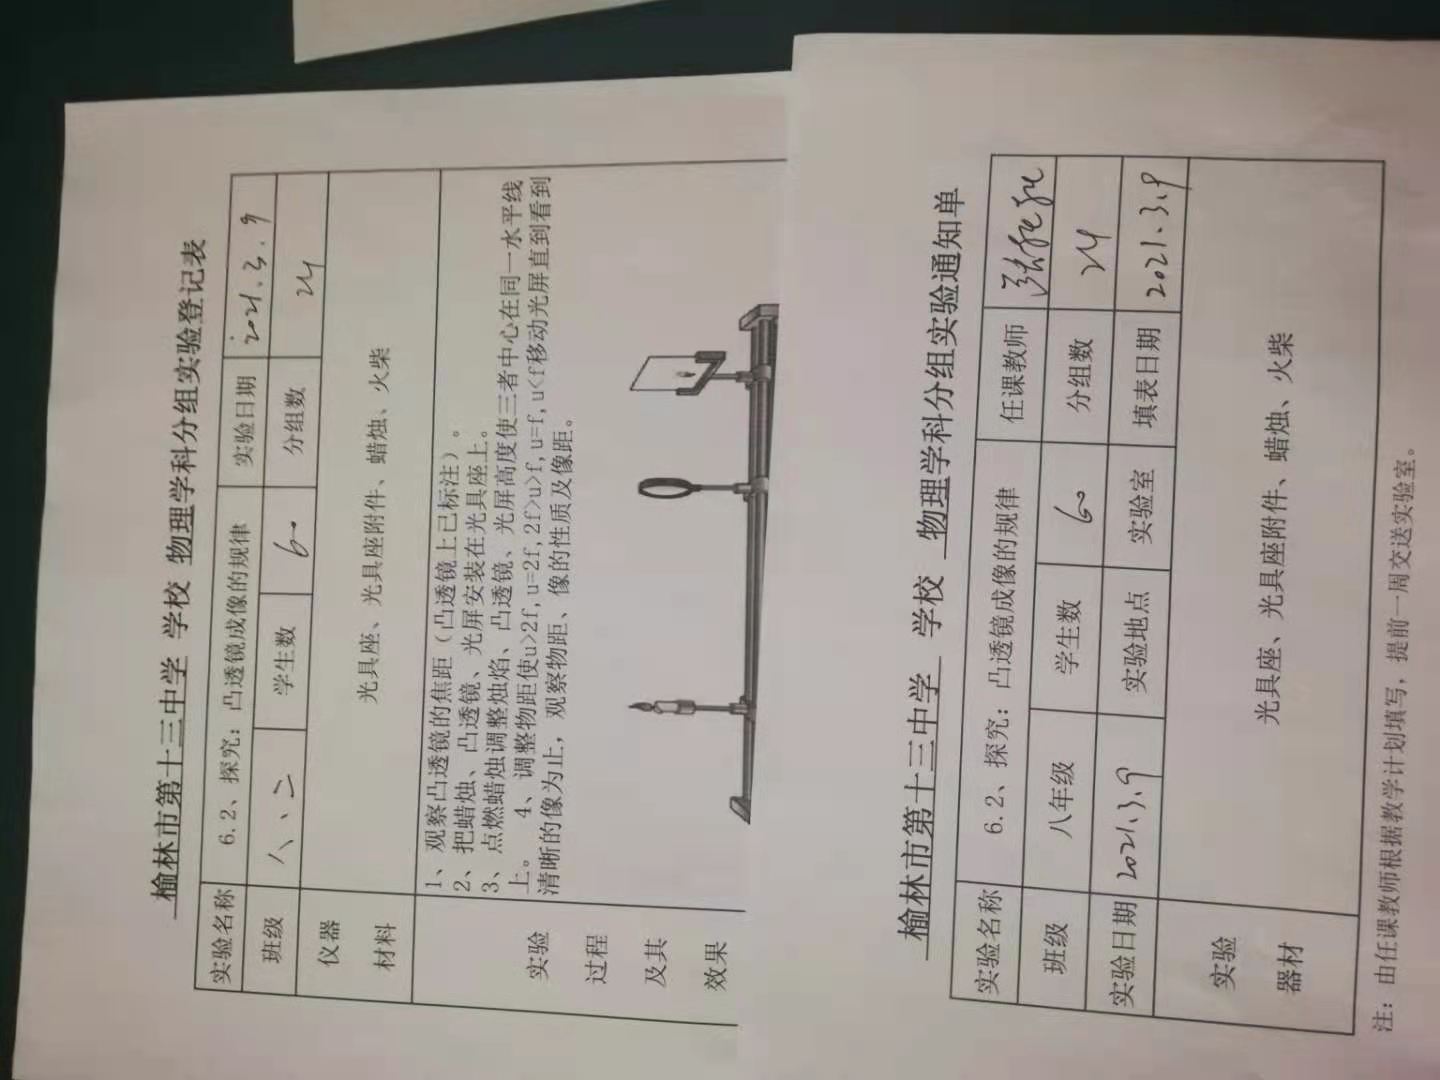 榆林市第十三中学 学校 物理学科分组实验登记表
实验名称 6.2、探究：凸透镜成像的规律 实验日期 2021.3.9
班级 八、二 学生数 60 分组数 24
仪器材料 光具座、光具座附件、蜡烛、火柴
实验过程及其效果
1、观察凸透镜的焦距（凸透镜上已标注）。
2、把蜡烛、凸透镜、光屏安装在光具座上。
3、点燃蜡烛调整烛焰、凸透镜、光屏高度使三者中心在同一水平线
上。 4、调整物距使u>2f,u=2f,2f>u>f,u=f,u<f移动光屏直到看到
清晰的像为止，观察物距、像的性质及像距。
榆林市第十三中学 学校 物理学科分组实验通知单
实验名称 6.2、探究：凸透镜成像的规律 任课教师
班级 八年级 学生数 60 分组数 24
实验日期 2021.3.9 实验地点 实验室 填表日期 2021.3.9
实验器材 光具座、光具座附件、蜡烛、火柴
注：由任课教师根据教学计划填写，提前一周交送实验室。